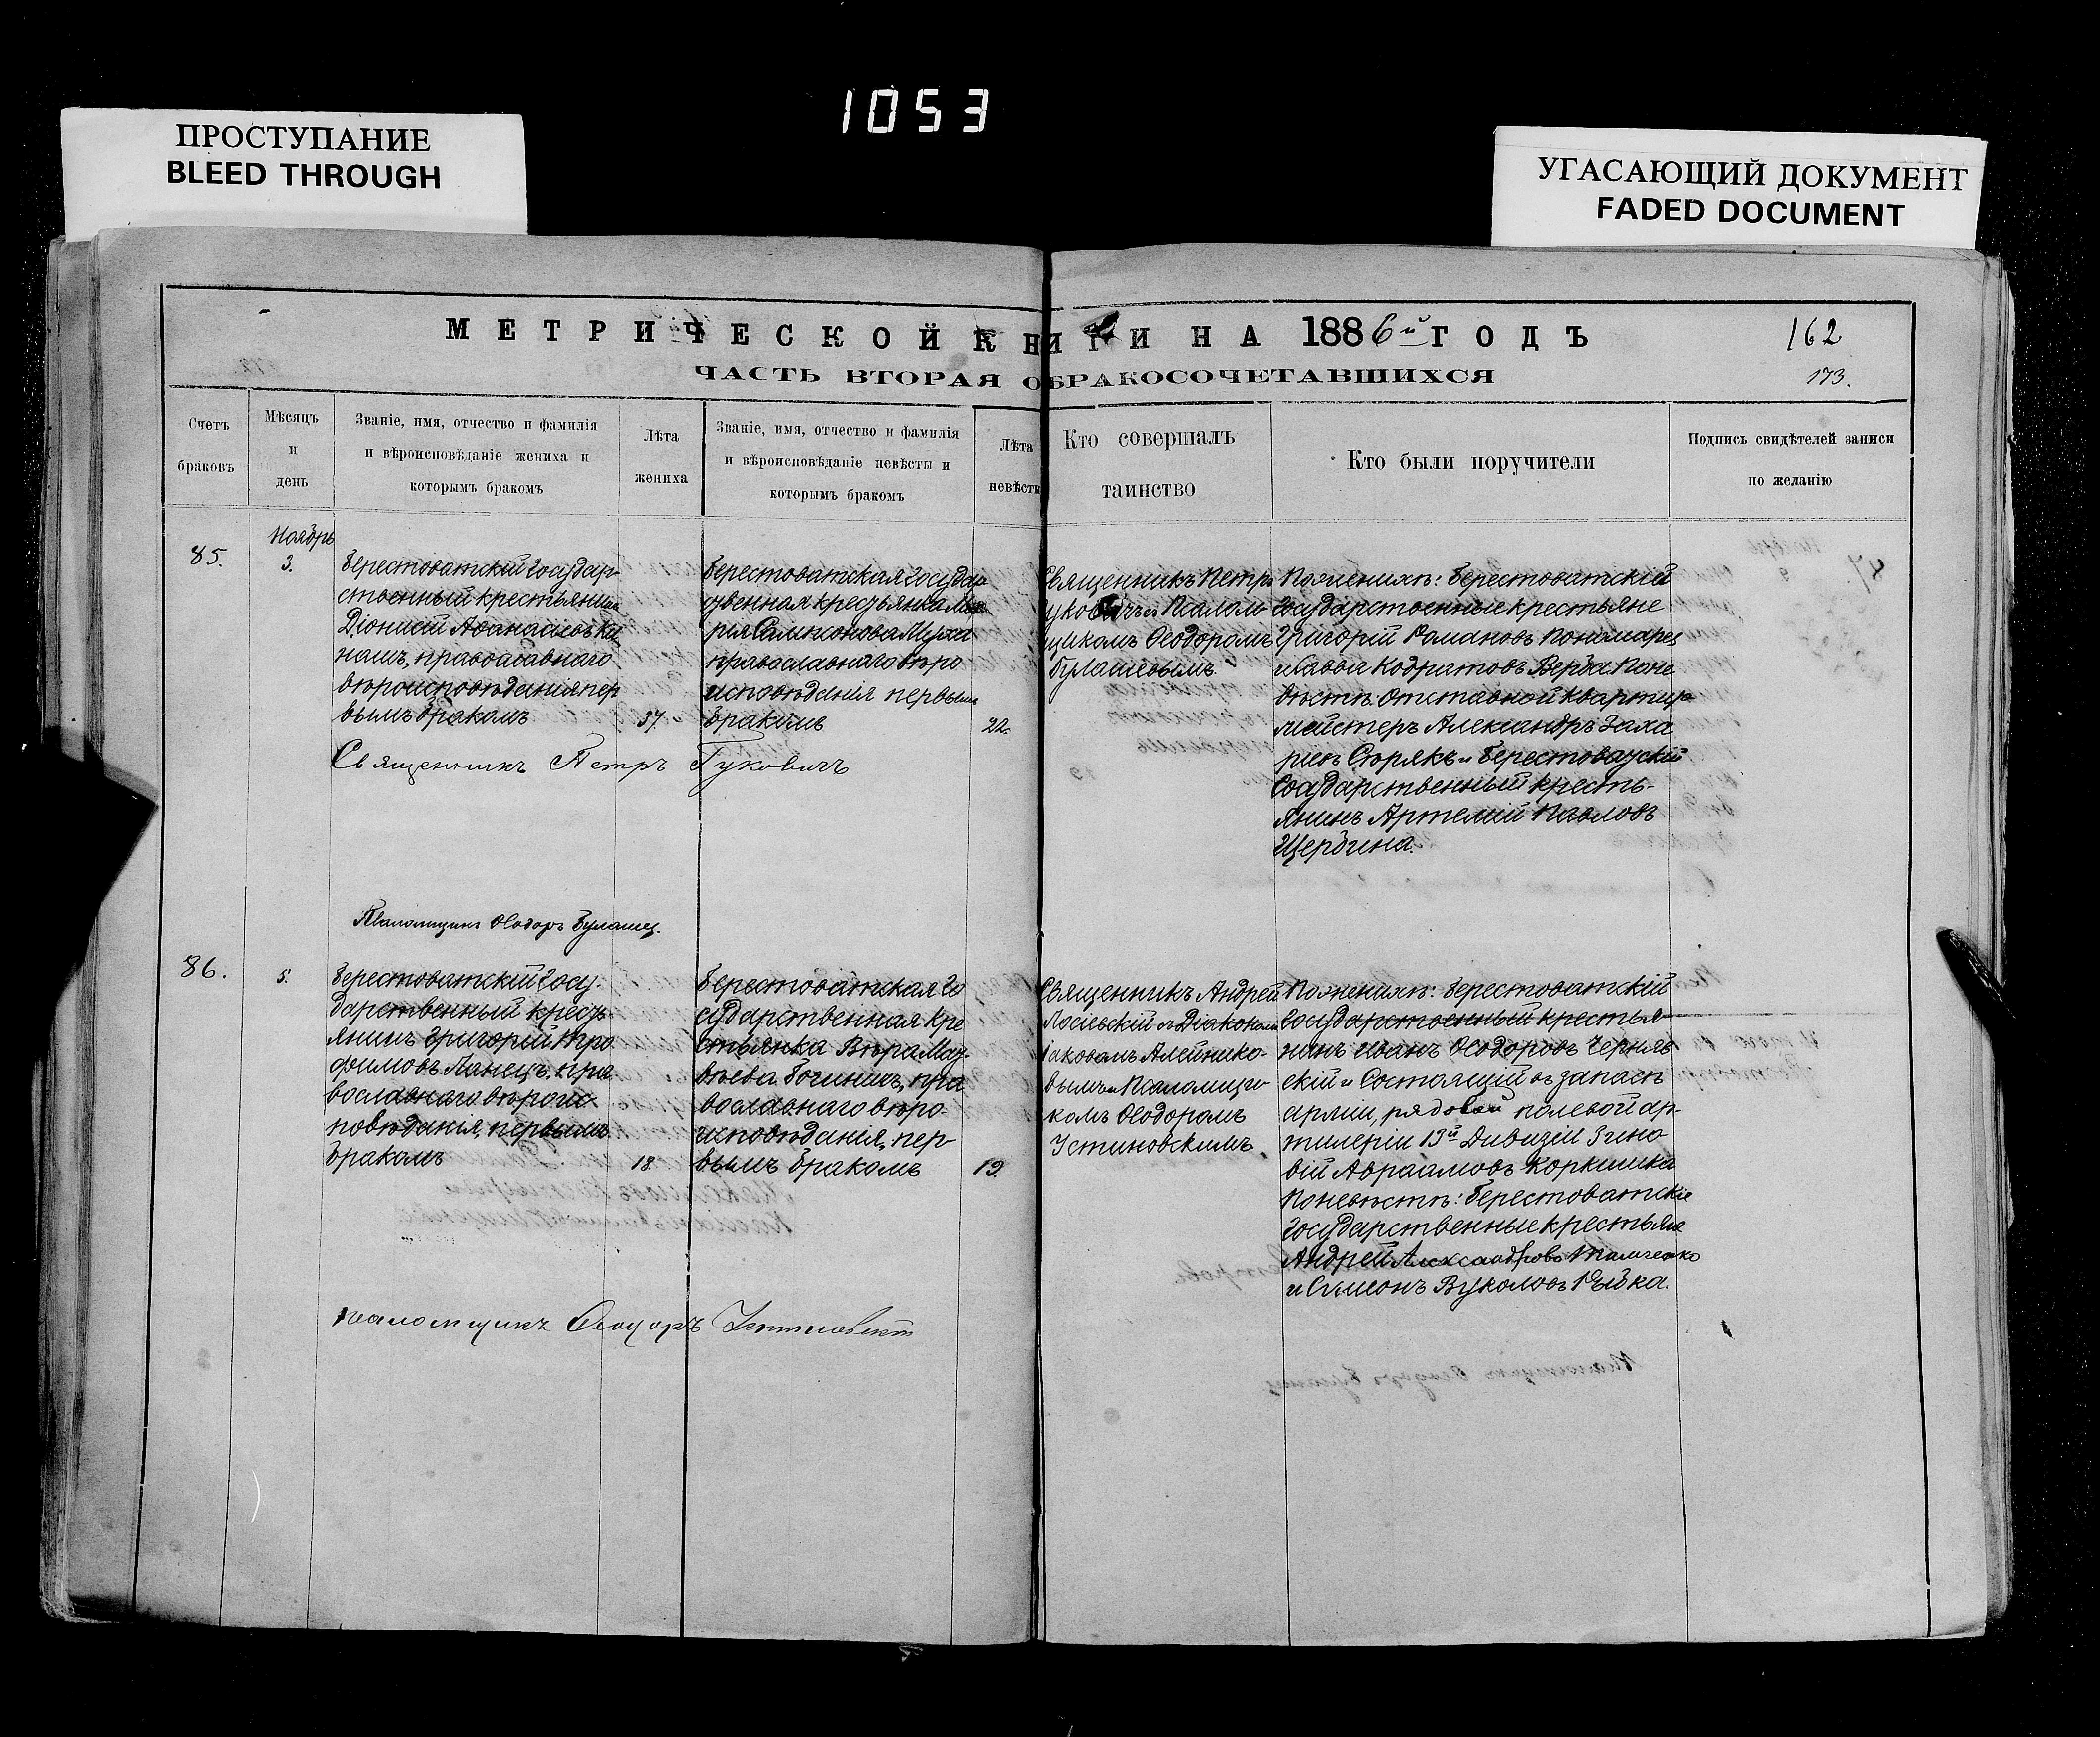 1053
ПРОСТУПАНИЕ
BLEED THROUGH
УГАСАЮЩИЙ ДОКУМЕНТ
FADED DOCUMENT
МЕТРИЧЕСКОЙ КНИГИ НА 1886й ГОДЪ
162
ЧАСТЬ ВТОРАЯ О БРАКОСОЧЕТАВШИХСЯ
173.
Счетъ
браковъ
Мѣсяцъ
и
день
Званіе, имя, отчество и фамилія
и вѣроисповѣданіе жениха и
которымъ бракомъ
Лѣта
жениха
Званіе, имя, отчество и фамилія
и вѣроисповѣданіе невѣсты и
которымъ бракомъ
Лѣта
невѣсты
Кто совершалъ
таинство
Кто были поручители
Подпись свидѣтелей записи
по желанію
85.
Ноябрь
3.
Берестоватскій Государ
ственный крестьянинъ
Діонисій Аѳанасіевъ
православнаго
вѣроисповѣданія пер
вымъ бракомъ
37.
Берестоватская Государ
ственная крестьянка
рія Самсонова
православнаго вѣро
исповѣданія первымъ
бракомъ
22.
Священникъ Петръ
Гуковичъ съ Псалом
щикомъ Ѳеодоромъ
Булашевымъ
По женихѣ: Берестоватскій
Государственные крестьяне
Григорій Романовъ Пономарев
и Савва Кодратовъ Верба По не
вѣстѣ: Отставной Квартир
мейстеръ Александръ Заха
ріевъ и Берестоватскій
Государственный кресть-
янинъ Артемій Павловъ
Щербина.
Священникъ Петръ Гуковичъ
Псаломщикъ Ѳеодоръ Булашев.
86.
5.
Берестоватскій Госу-
дарственный кресть
янинъ Григорій Тро
фимовъ Панецъ, пра
вославнаго вѣроис
повѣданія, первымъ
бракомъ
18.
Берестоватская Го
сударственная Кре
стьянка Вѣра Мат-
вѣева пра
вославнаго вѣро-
исповѣданія, пер-
вымъ бракомъ
19.
Священникъ Андрей
съ Діакономъ
Іаковомъ Алейнико-
вымъ и Псаломщи
комъ Ѳеодоромъ
Устиновскимъ.
По женихѣ: Берестоватскій
Государственный крестья-
нинъ Иванъ Ѳеодоровъ Черняв
скій и Состоящій въ запасѣ
арміи, рядовой полевой ар-
тилеріи 13й Дивизіи Зино-
вій Авраамовъ Коркишка
По невѣстѣ: Берестоватскіе
Государственные крестьяне
Андрей Александровъ
и Сѵмеонъ Вуколовъ
Псаломщикъ Ѳеодоръ Устиновскій